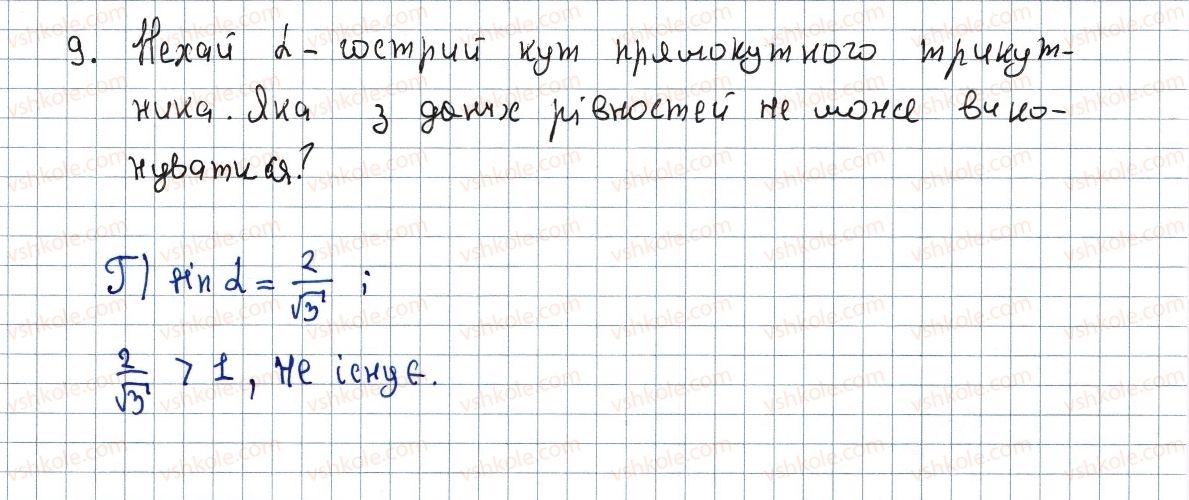 9. Нехай α - гострий кут прямокутного трикут-
ника. Яка з даних рівностей не може вико-
нуватися?
Г) sin α = 2/√3 ;
2/√3 > 1, не існує.